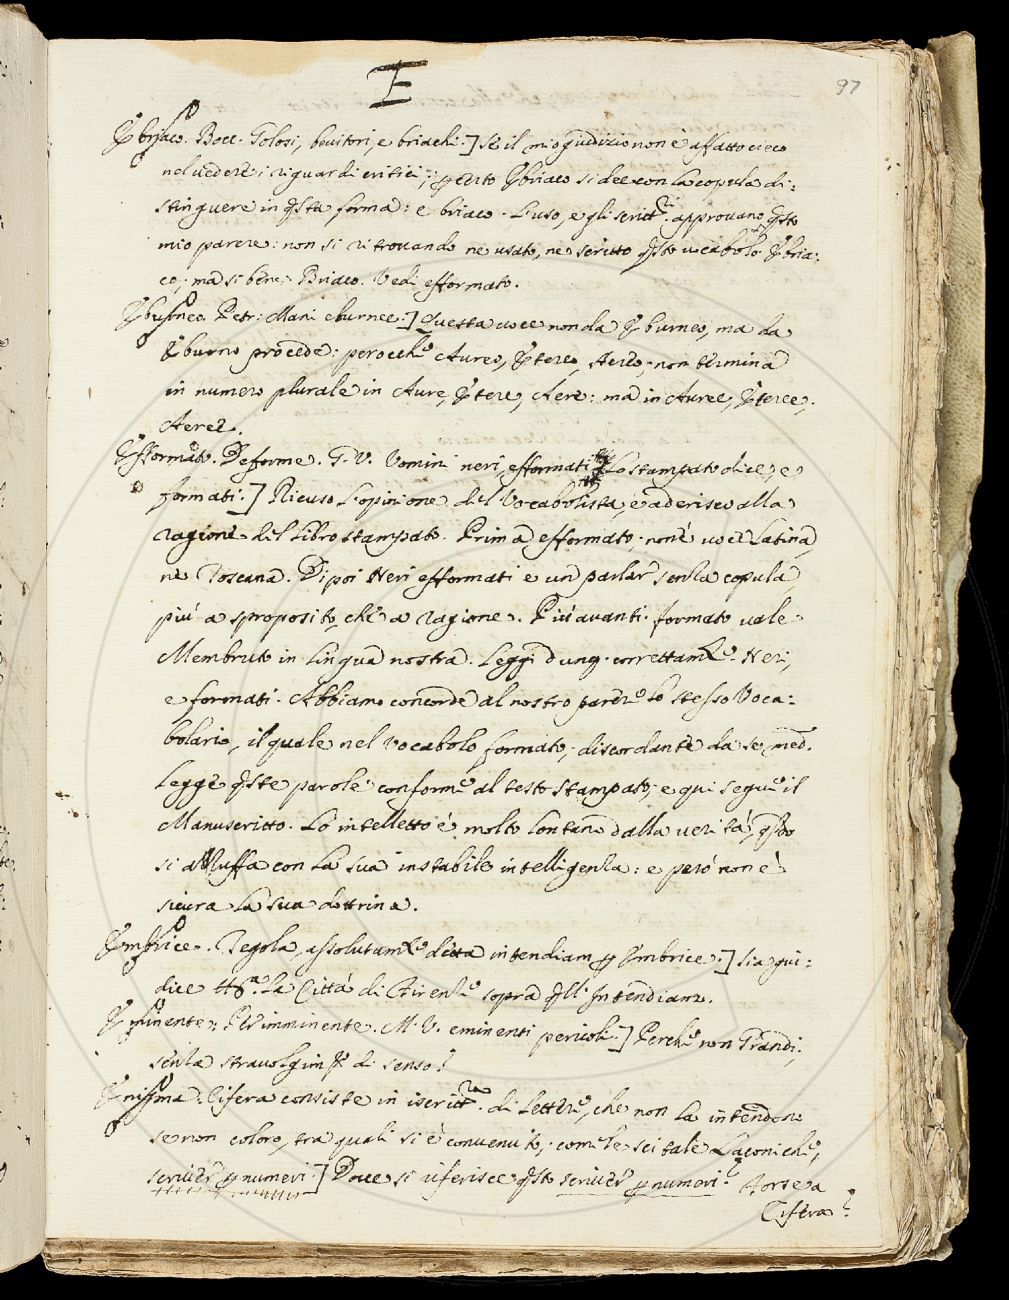 E
97
Ebriaco. Bocc. Golosi, bevitori, e briachi.] Se il mio giudizio non è affatto cieco
nel vedere i riguardi critici; p certo Ebriaco si dee con la copula di:
stinguere in qsta forma: e briaco. L'uso, e gli scritt.ri approvano qsto
mio parere: non si ritrovando nè usato, nè scritto qsto vocabolo Ebria:
co, ma si bene Briaco. Vedi efformato.
Eburneo. Petr: Mani eburnee.] Questa voce non da Eburneo, ma da
Eburno procede: perocchè Aureo, Etereo, Aereo non termina
in numero plurale in Aure, Etere, Aere: ma in Auree, Eteree,
Aeree.
Efformato. Deforme. G. V. Uomini neri, efformati Lo stampato dice, e
formati.] Ricuso l'opinione del Vocabolista, e aderisco alla
ragione del libro stampato. Prima efformato, non è voce Latina,
nè Toscana. Di poi Neri efformati è un parlar senza copula,
più a sproposito, che a ragione. Più avanti formato vale
Membruto in lingua nostra. Leggi dunq. correttam.te Neri,
e formati. Abbiamo concorde al nostro parere lo stesso Voca:
bolario, il quale nel vocabolo formato, discordante da se med.
Legge qste parole conforme al testo stampato, e qui segue il
Manuscritto. Lo intelletto è molto lontano dalla verità, qdo
si azzuffa con la sua instabile intelligenza: e però non è
sicura la sua dottrina.
Embrice. Tegola, assolutam.te detta intendiam p Embrice.] Sia giu:
dice la Città di Firenze sopra qll' Intendiam.
Eminente. P imminente. M. V. eminenti pericoli.] Perchè non Grandi,
senza stravolgim.to di senso?
Enimma. Cifera consiste in iscritt.ra di lettere, che non la intendono
se non coloro, tra quali si è convenuto, come le scitale Laconiche,
scriver p numeri.] Dove si riferisce qsto scriver p numeri? Forse a
Cifera?